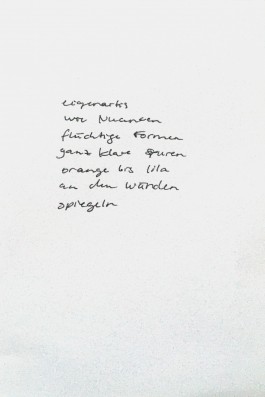 eigenartig
wie Nuancen
flüchtige Formen
ganz klare Spuren
orange bis lila
an den Wänden
spiegeln